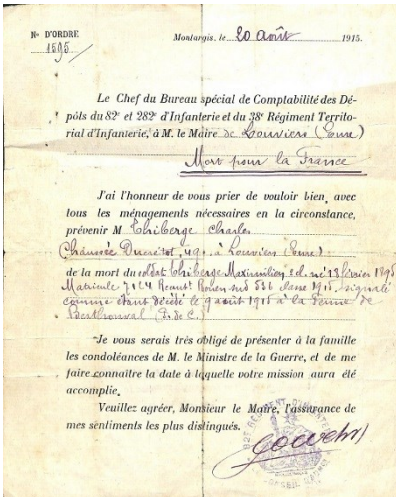 No D'ORDRE
1595
Montargis, le 20 août 1915.
Le Chef du Bureau spécial de Comptabilité des Dé-
pôts du 82e et 282e d'Infanterie et du 38e Régiment Territo-
rial d'Infanterie, à M. le Maire de Louviers (Eure)
Mort pour la France
J'ai l'honneur de vous prier de vouloir bien, avec
tous les ménagements nécessaires en la circonstance,
prévenir M Thiberge Charles
Chaussée 49, à Louviers (Eure)
de la mort du soldat Thiberge Maximilien né 13 février 1895
Matricule 7124 Rouen sud 536 classe 1915, signalé
comme étant décédé le 9 août 1915 à la ferme de
Berthonval (P. de C.)
Je vous serais très obligé de présenter à la famille
les condoléances de M. le Ministre de la Guerre, et de me
faire connaître la date à laquelle votre mission aura été
accomplie.
Veuillez agréer, Monsieur le Maire, l'assurance de
mes sentiments les plus distingués.
82e REGIMENT D'INFANTERIE